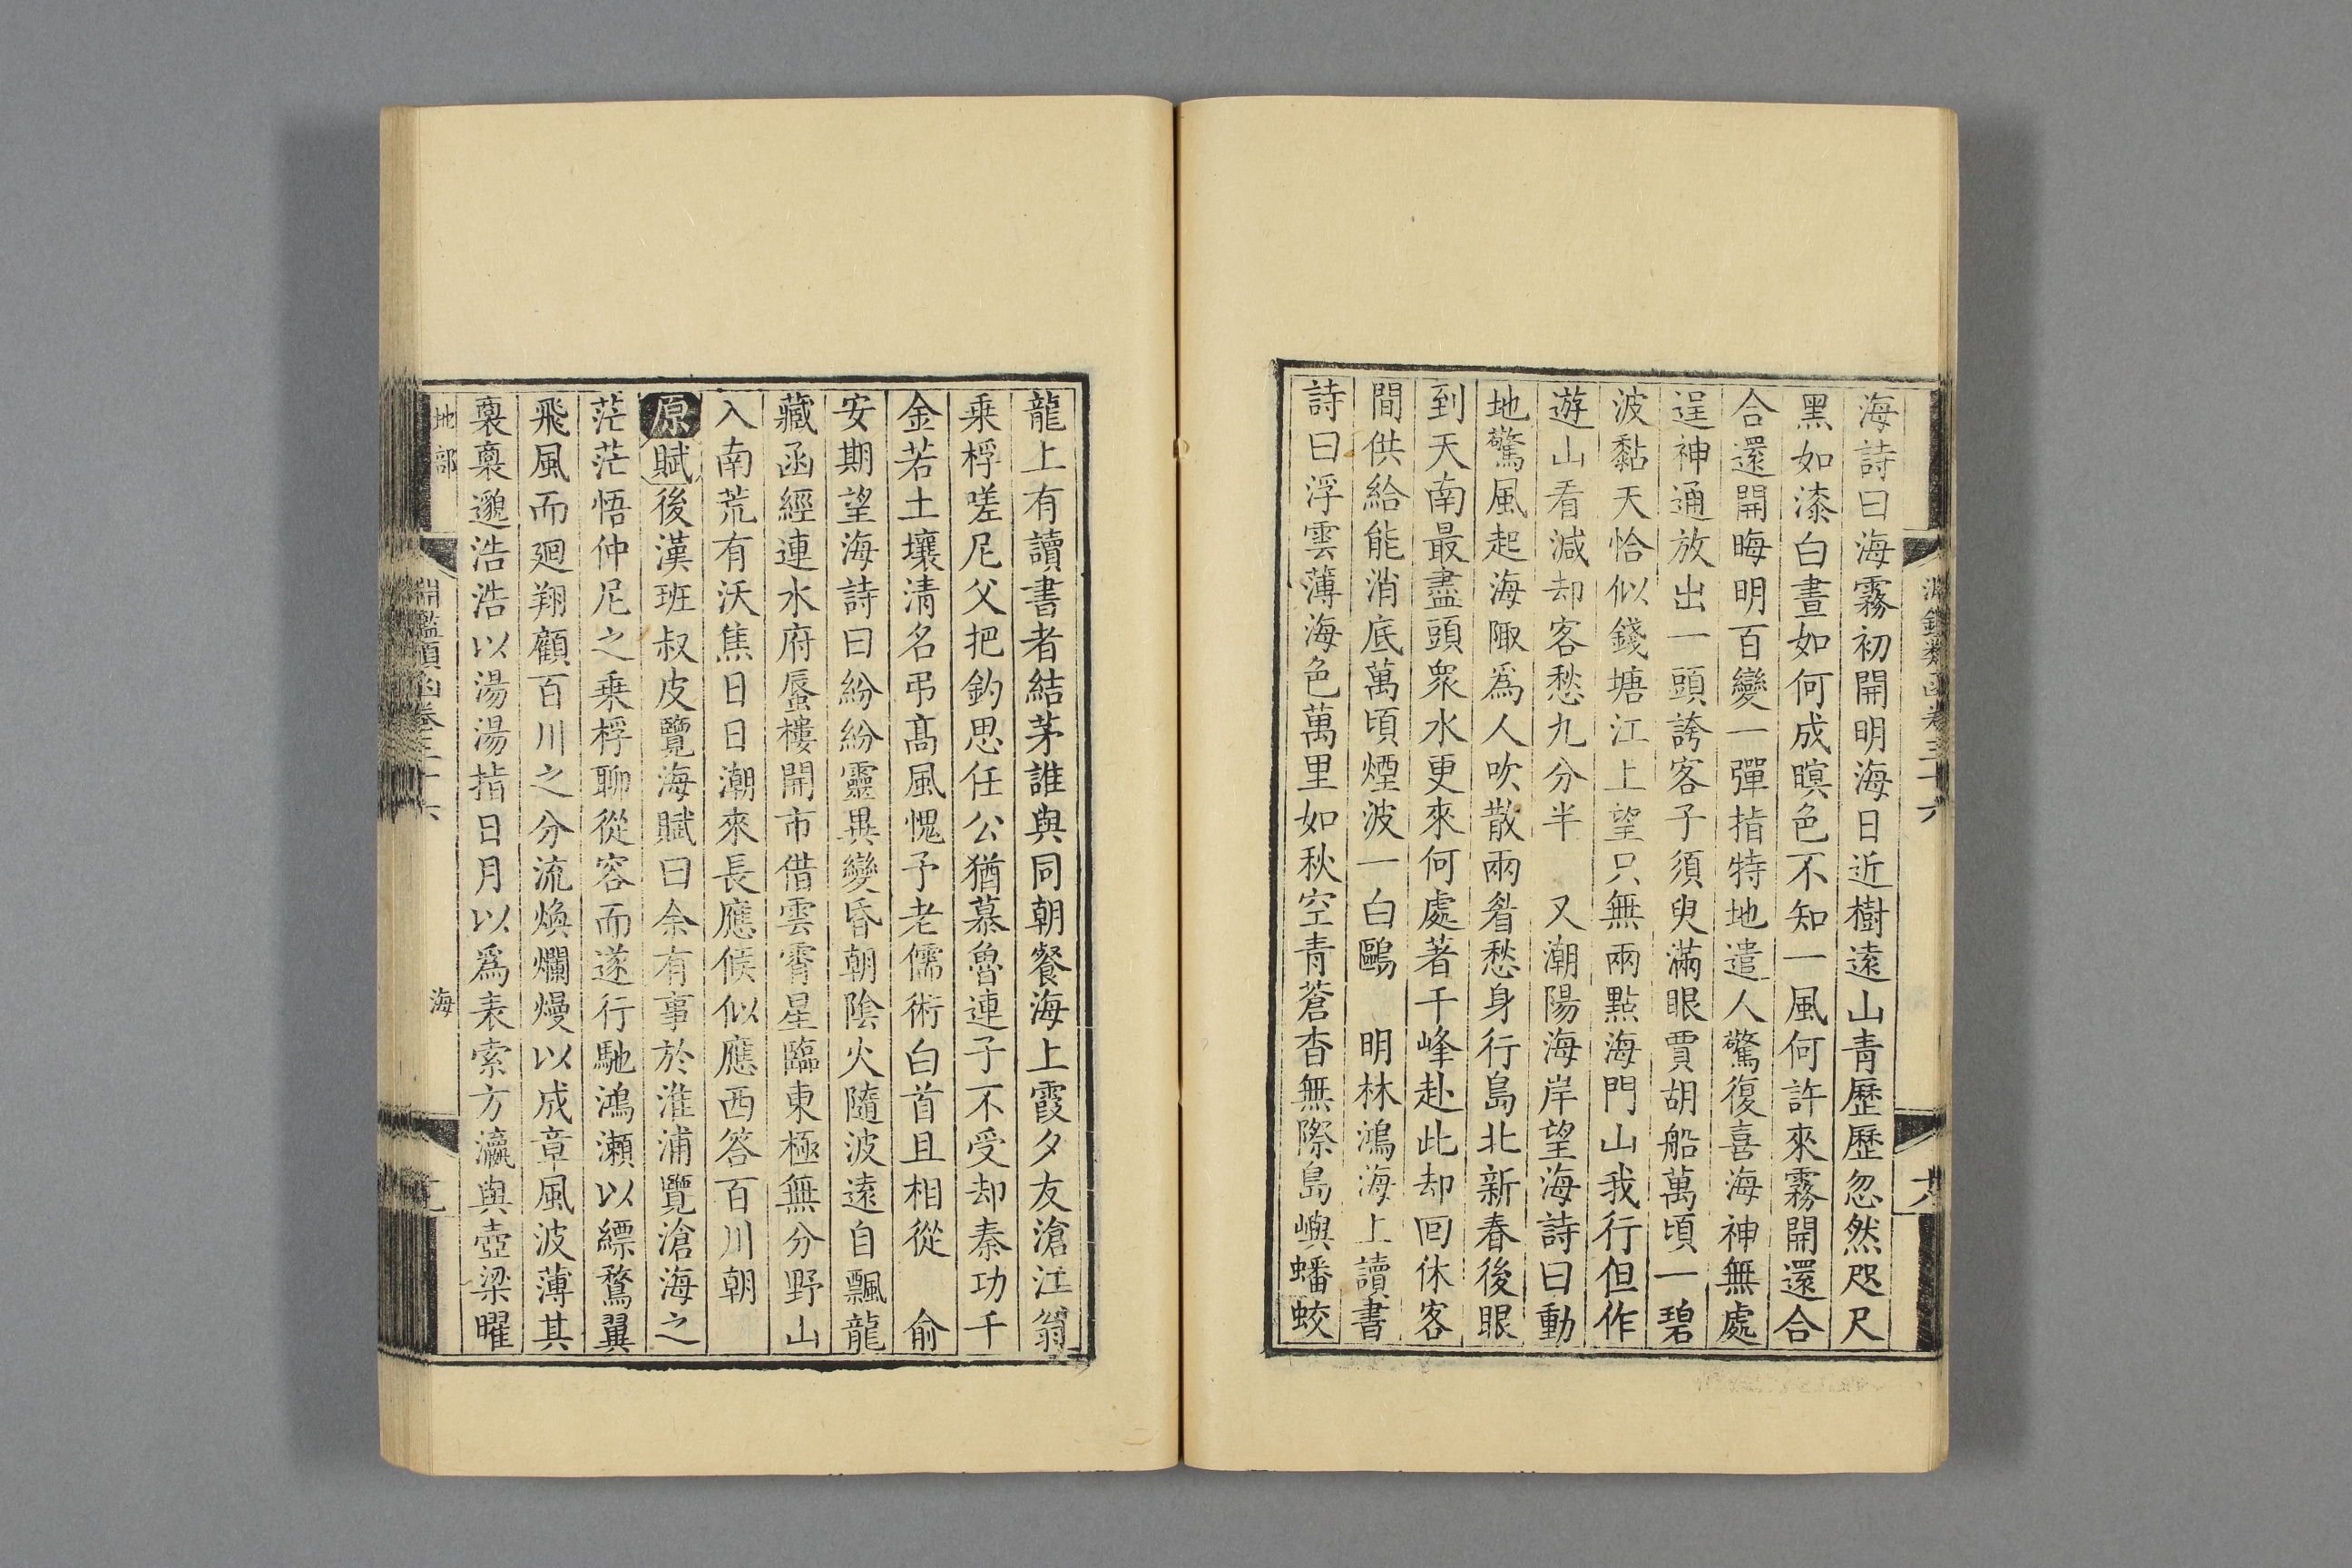 海詩曰海霧初開明海日近樹遠山青歷歷忽然咫尺
黑如漆白晝如何成暝色不知一風何許來霧開還合
合還開晦明百變一彈指特地遣人驚復喜海神無處
逞神通放出一頭誇客子須臾滿眼賈胡船萬頃一碧
波黏天恰似錢塘江上望只無兩點海門山我行但作
遊山看減却客愁九分半 又潮陽海岸望海詩曰動
地驚風起海陬爲人吹散兩眉愁身行島北新春後眼
到天南最盡頭衆水更來何處著千峰赴此却回休客
間供給能消底萬頃煙波一白鷗 明林鴻海上讀書
詩曰浮雲薄海色萬里如秋空青蒼杳無際島嶼蟠蛟
龍上有讀書者結茅誰與同朝餐海上霞夕友滄江翁
乘桴嗟尼父把釣思任公猶慕魯連子不受却秦功千
金若土壤清名弔高風愧予老儒術白首且相從 俞
安期望海詩曰紛紛靈異變昏朝陰火隨波遠自飄龍
藏函經連水府蜃樓開市借雲霄星臨東極無分野山
入南荒有沃焦日日潮來長應候似應西答百川朝
原賦後漢班叔皮覽海賦曰余有事於淮浦覽滄海之
茫茫悟仲尼之乘桴聊從容而遂行馳鴻瀨以縹鶩翼
飛風而廻翔顧百川之分流煥爛熳以成章風波薄其
裒裒邈浩浩以湯湯指日月以爲表索方瀛與壺梁曜
地部
淵鑑類函卷三十六
海